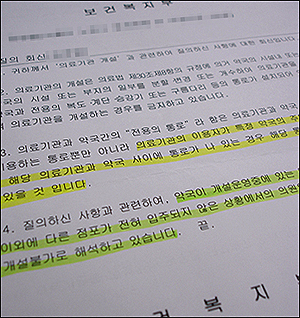 보건복지부
질의 회신
귀하께서 '의료기관 개설' 과 관련하여 질의하신 사항에 대한 회신입니다.
2. 의료기관의 개설은 의료법 제30조제8항의 규정에 의거 약국의 시설
국의 시설 또는 부지의 일부를 분할 변경 또는 개수하여 의료기관을
약국과 전용의 복도 계단 승강기 또는 구름다리 등의 통로가 설치되어
의료기관을 개설하는 경우를 금지하고 있습니다.
3. 의료기관과 약국간의 "전용의 통로" 라 함은 의료기관과 약국
이용하는 통로뿐만 아니라 의료기관의 이용자가 특정 약국의 주
해당 의료기관과 약국 사이에 통로가 나 있는 경우 해당
있을 것 입니다.
4. 질의하신 사항과 관련하여, 약국이 개설운영중에 있는
이외에 다른 점포가 전혀 입주되지 않은 상황에서의 의원
개설불가로 해석하고 있습니다. 끝.
건 복 지 부